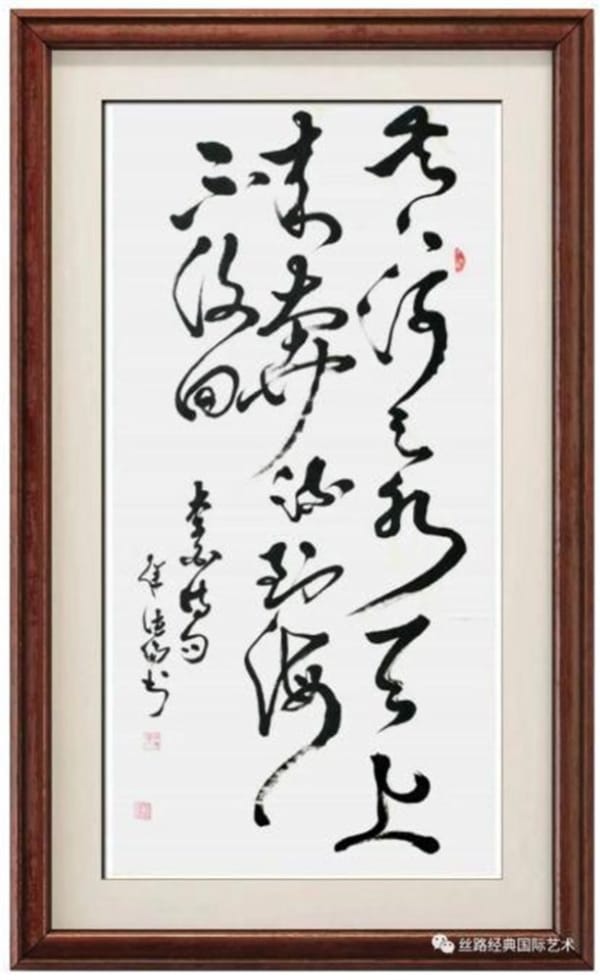 黄河之水天上
来奔流到海
不復回
李白诗句
徐书
丝路经典国际艺术